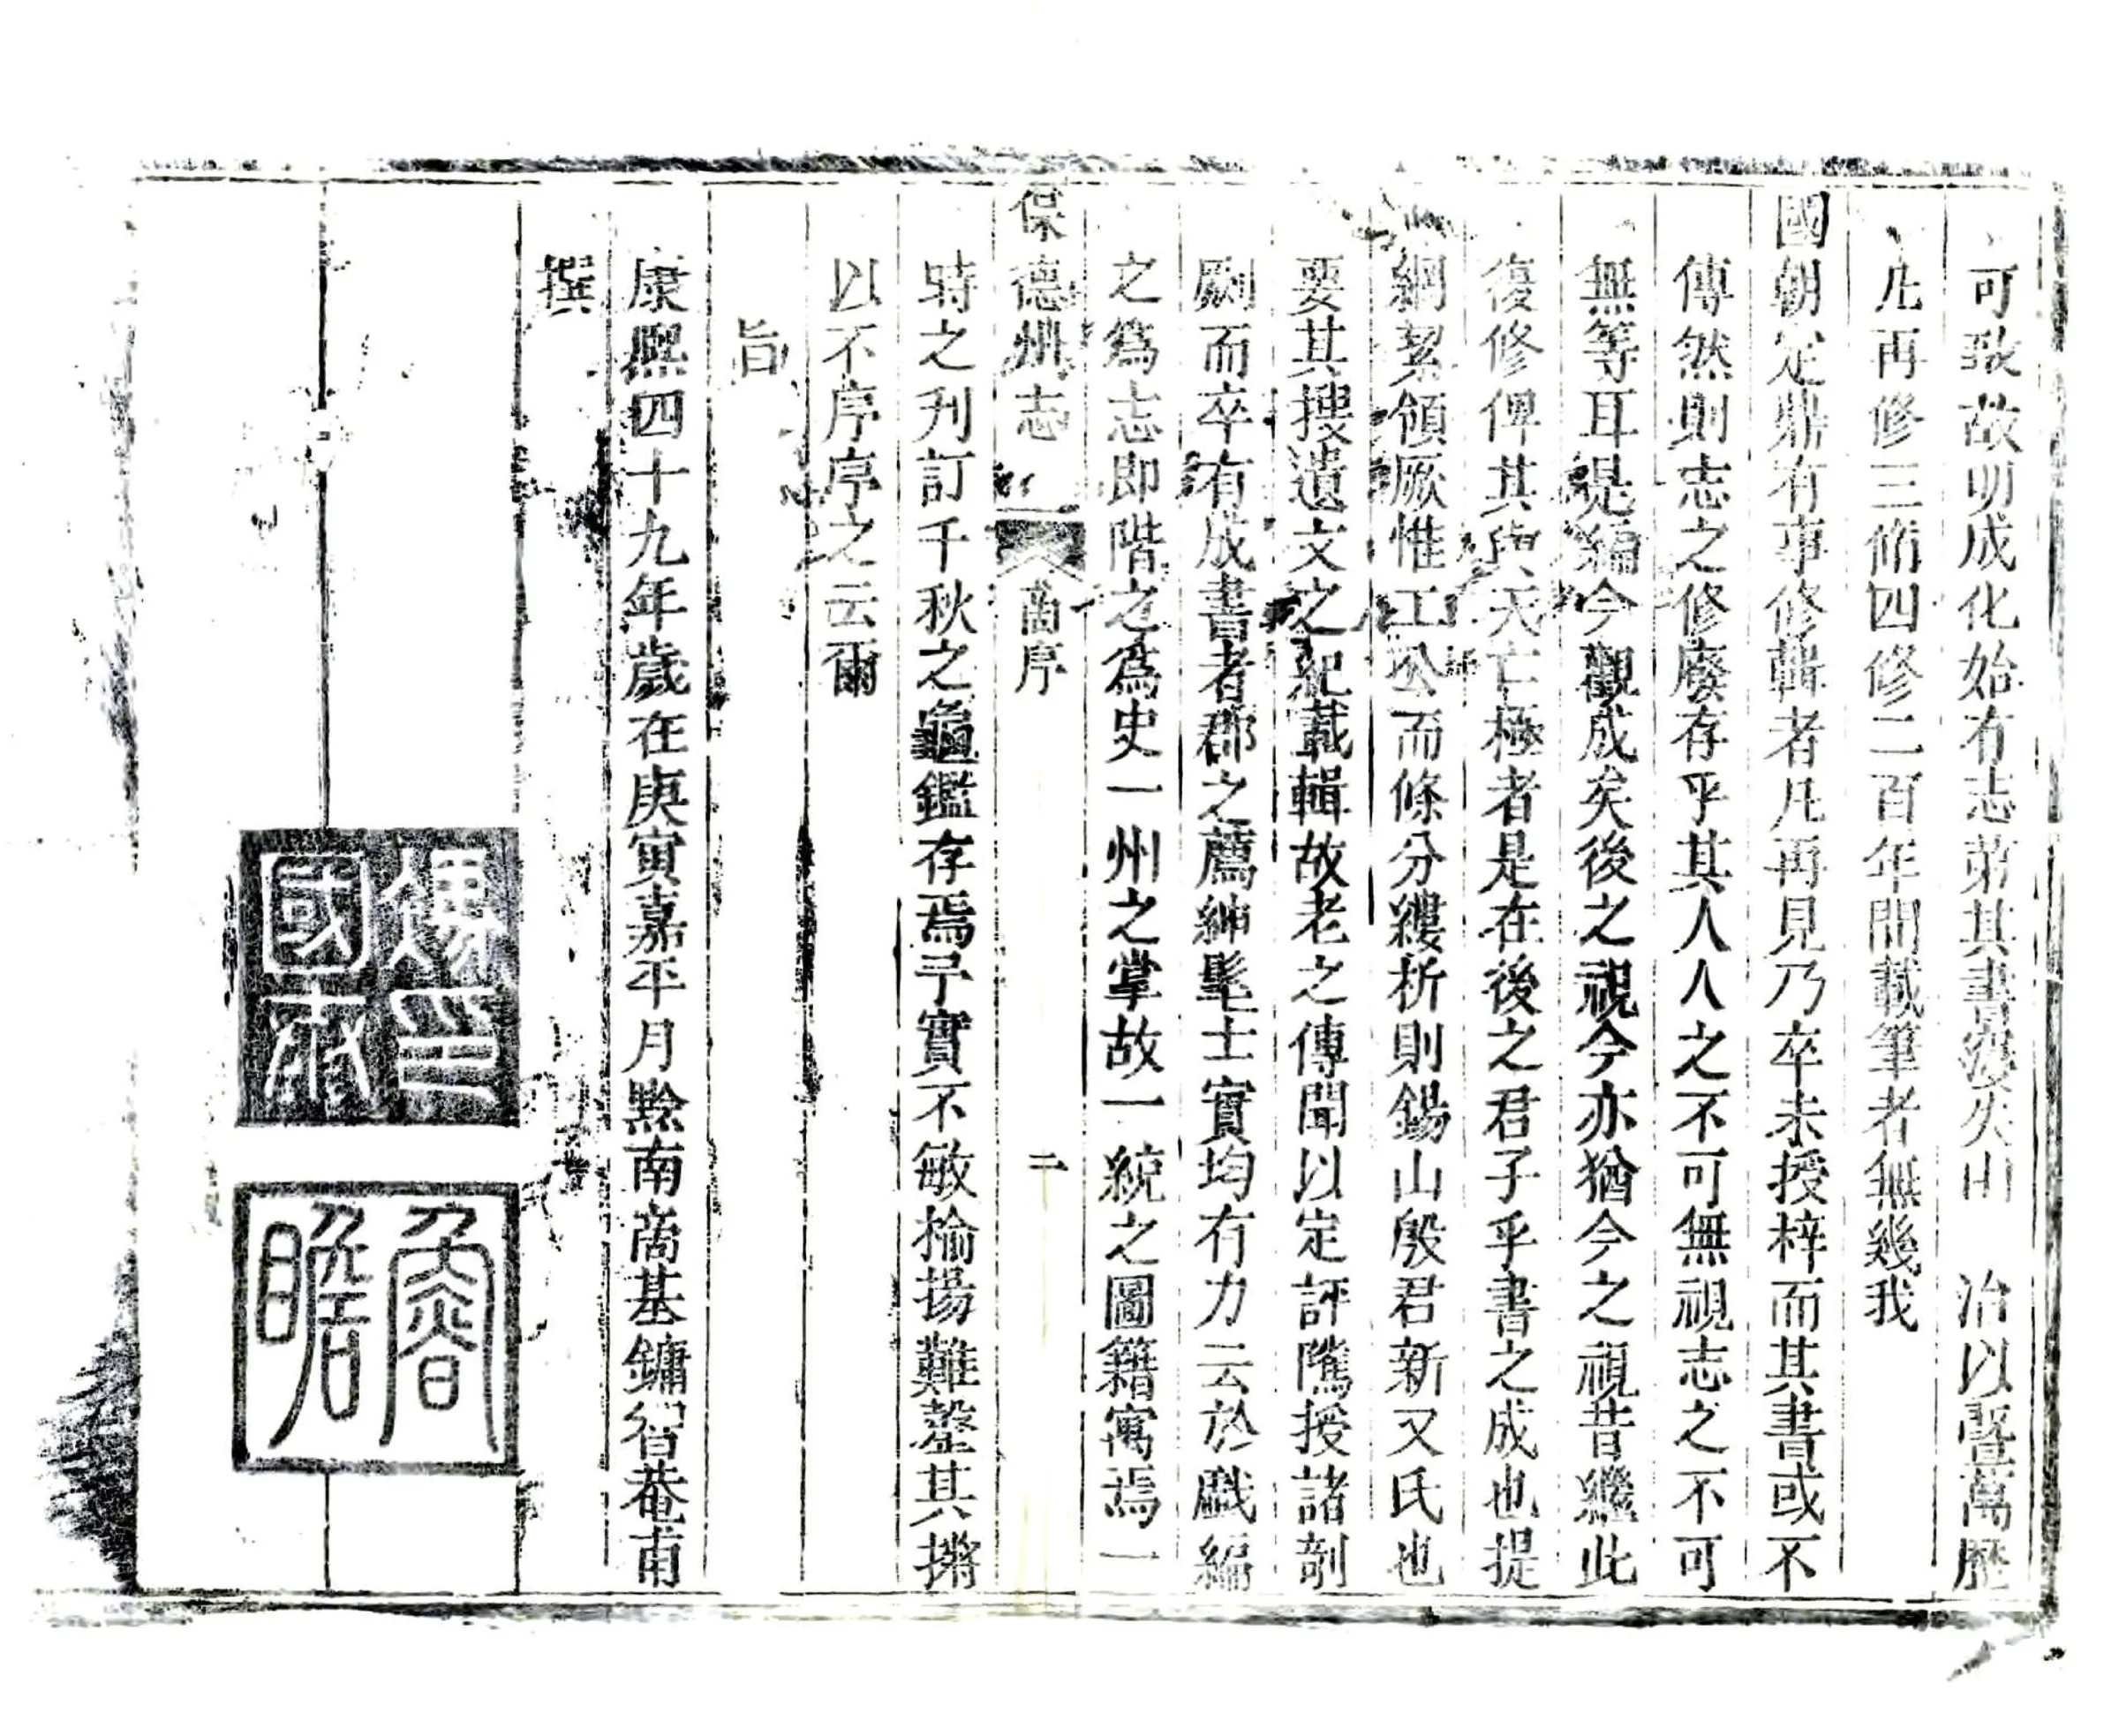 可致故明成化始有志第其書漫矣由　治以暨萬歷
凡再修三脩四修二百年間載筆者無幾我
國朝定鼎有事修輯者凡再見乃卒未授梓而其書或不
傳然則志之修廢存乎其人人之不可無視志之不可
無等耳是編今觀成矣後之視今亦猶今之視昔繼此
復修俾其與天亡極者是在後之君子乎書之成也提
綱絜領厥惟工公而條分縷析則錫山殷君新又氏也
要其搜遺文之紀載輯故老之傳聞以定評隲授諸剞
劂而卒有成書者郡之薦紳髦士實均有力云於戲編
之為志即階之為史一州之掌故一統之圖籍寓焉一
保德州志
喬序
二
時之刋訂千秋之龜鑑存焉予實不敏揄揚難罄其撡
以不序序之云爾
旨
康熙四十九年歲在庚寅嘉平月黔南喬基鏞智菴甫
撰
國
印
睿
瞻